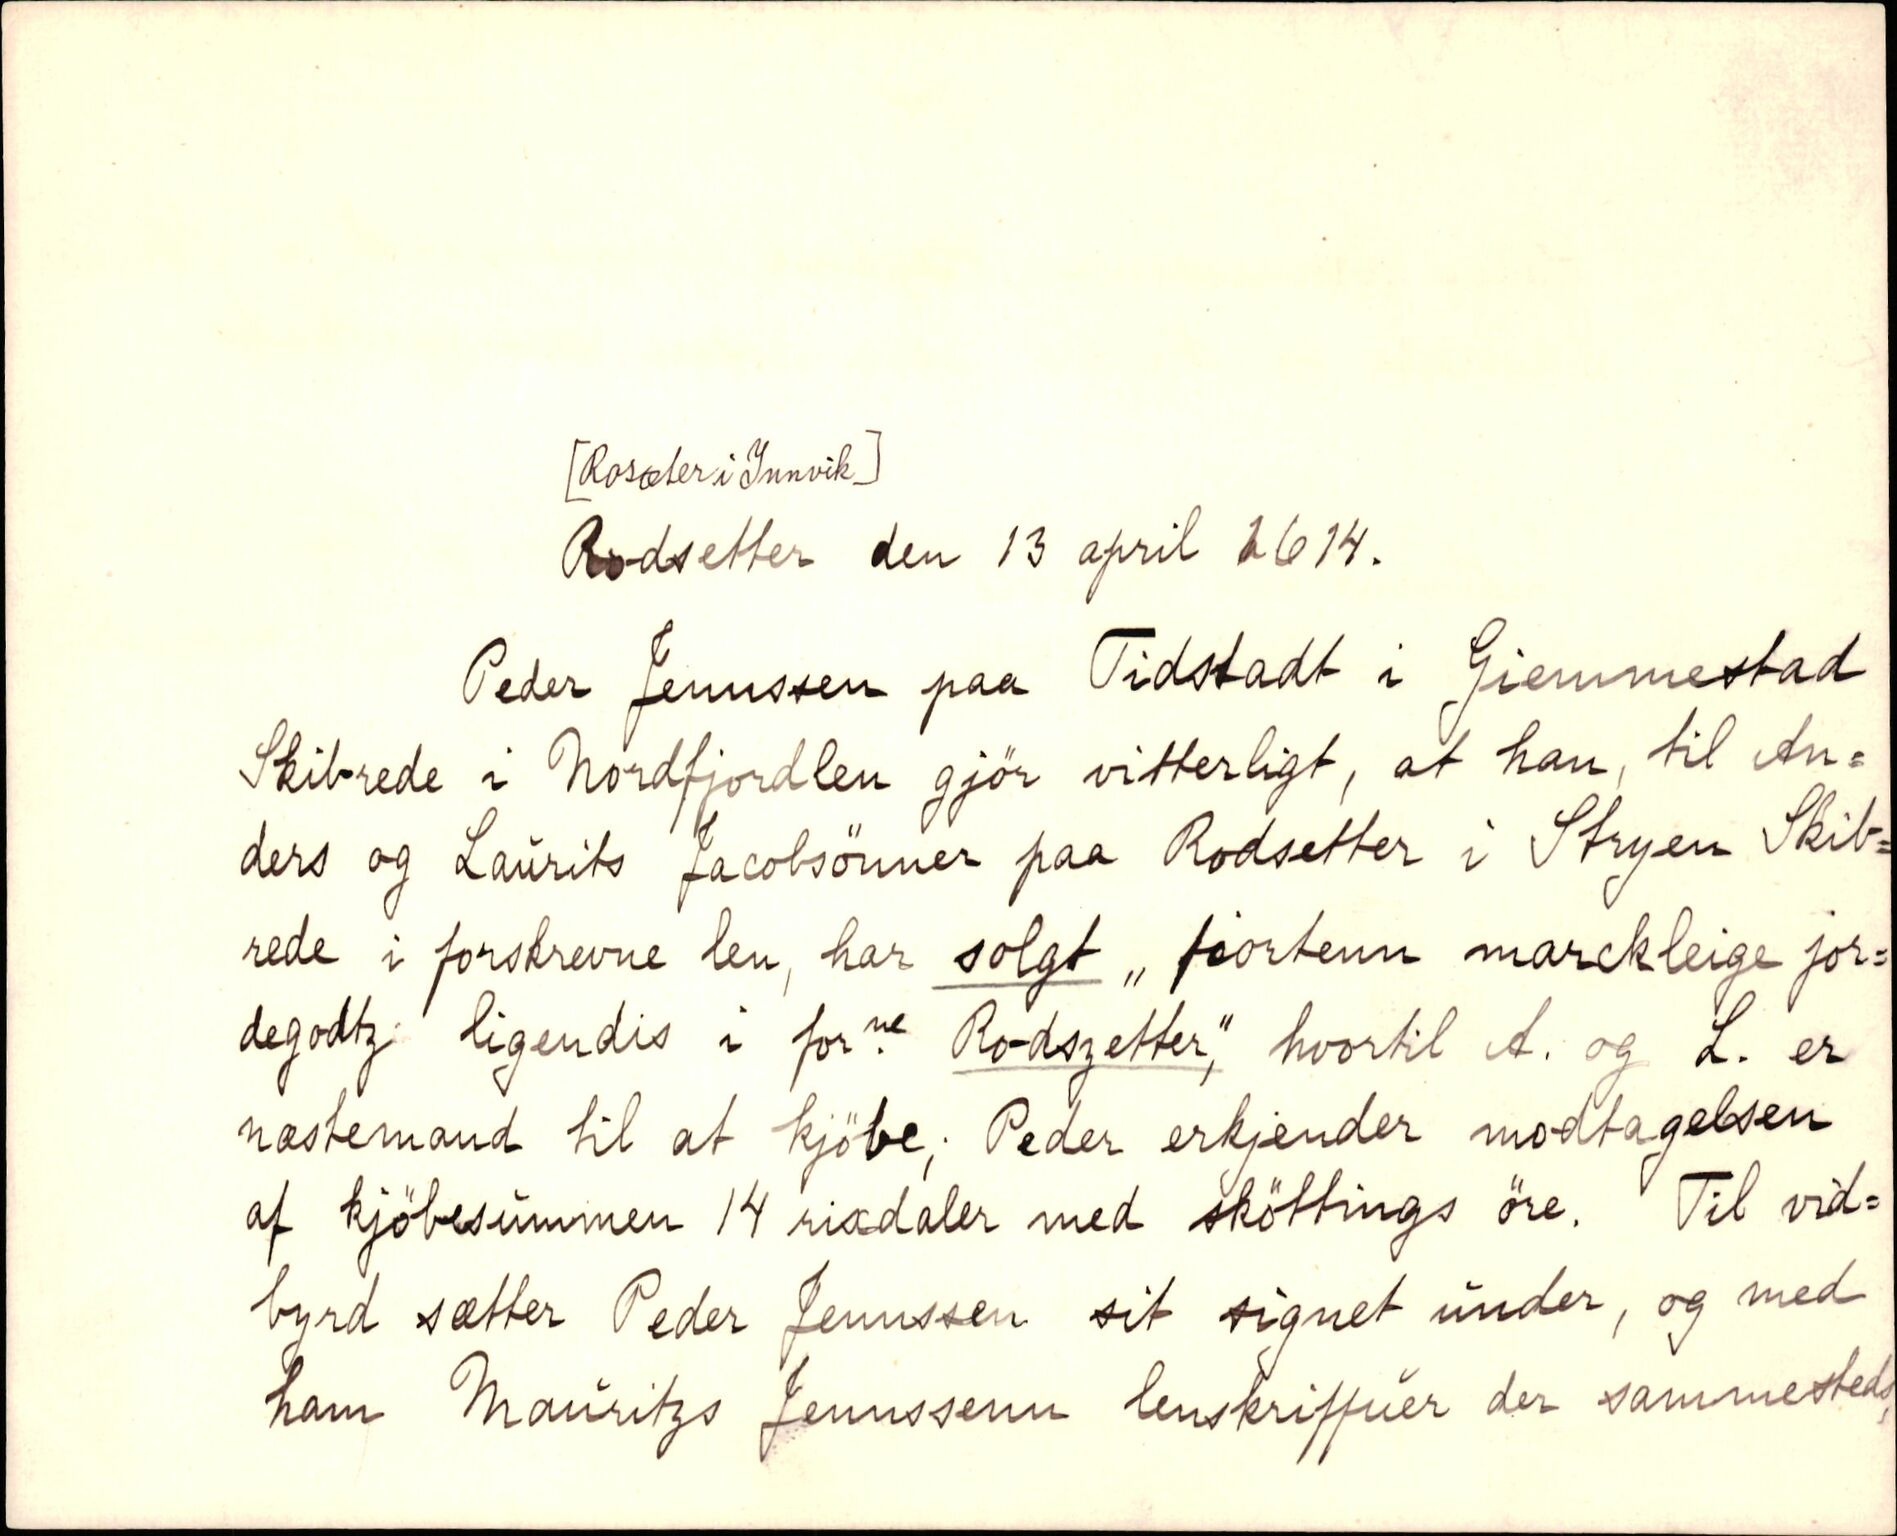 [Rosæter i Innvik]
Rodsetter den 13 april 1614.
Peder Jennssen paa Tidstadt i Giemmestad
Skibrede i Nordfjordlen gjör vitterligt, at han, til An=
ders og Laurits Jacobsönner paa Rodsetter i Stryen Skib=
rede i forskrevne len, har solgt „fiortenn marckleige jor=
degodtz ligendis i forne. Rodszetter“, hvortil A. og L. er
næstemand til at kjöbe; Peder erkjender modtagelsen
af kjöbesummen 14 rixdaler med sköttings öre. Til vid=
byrd sætter Peder Jennssen sit signet under, og med
ham Mauritzs Jennssenn lenskriffuer der sammesteds,